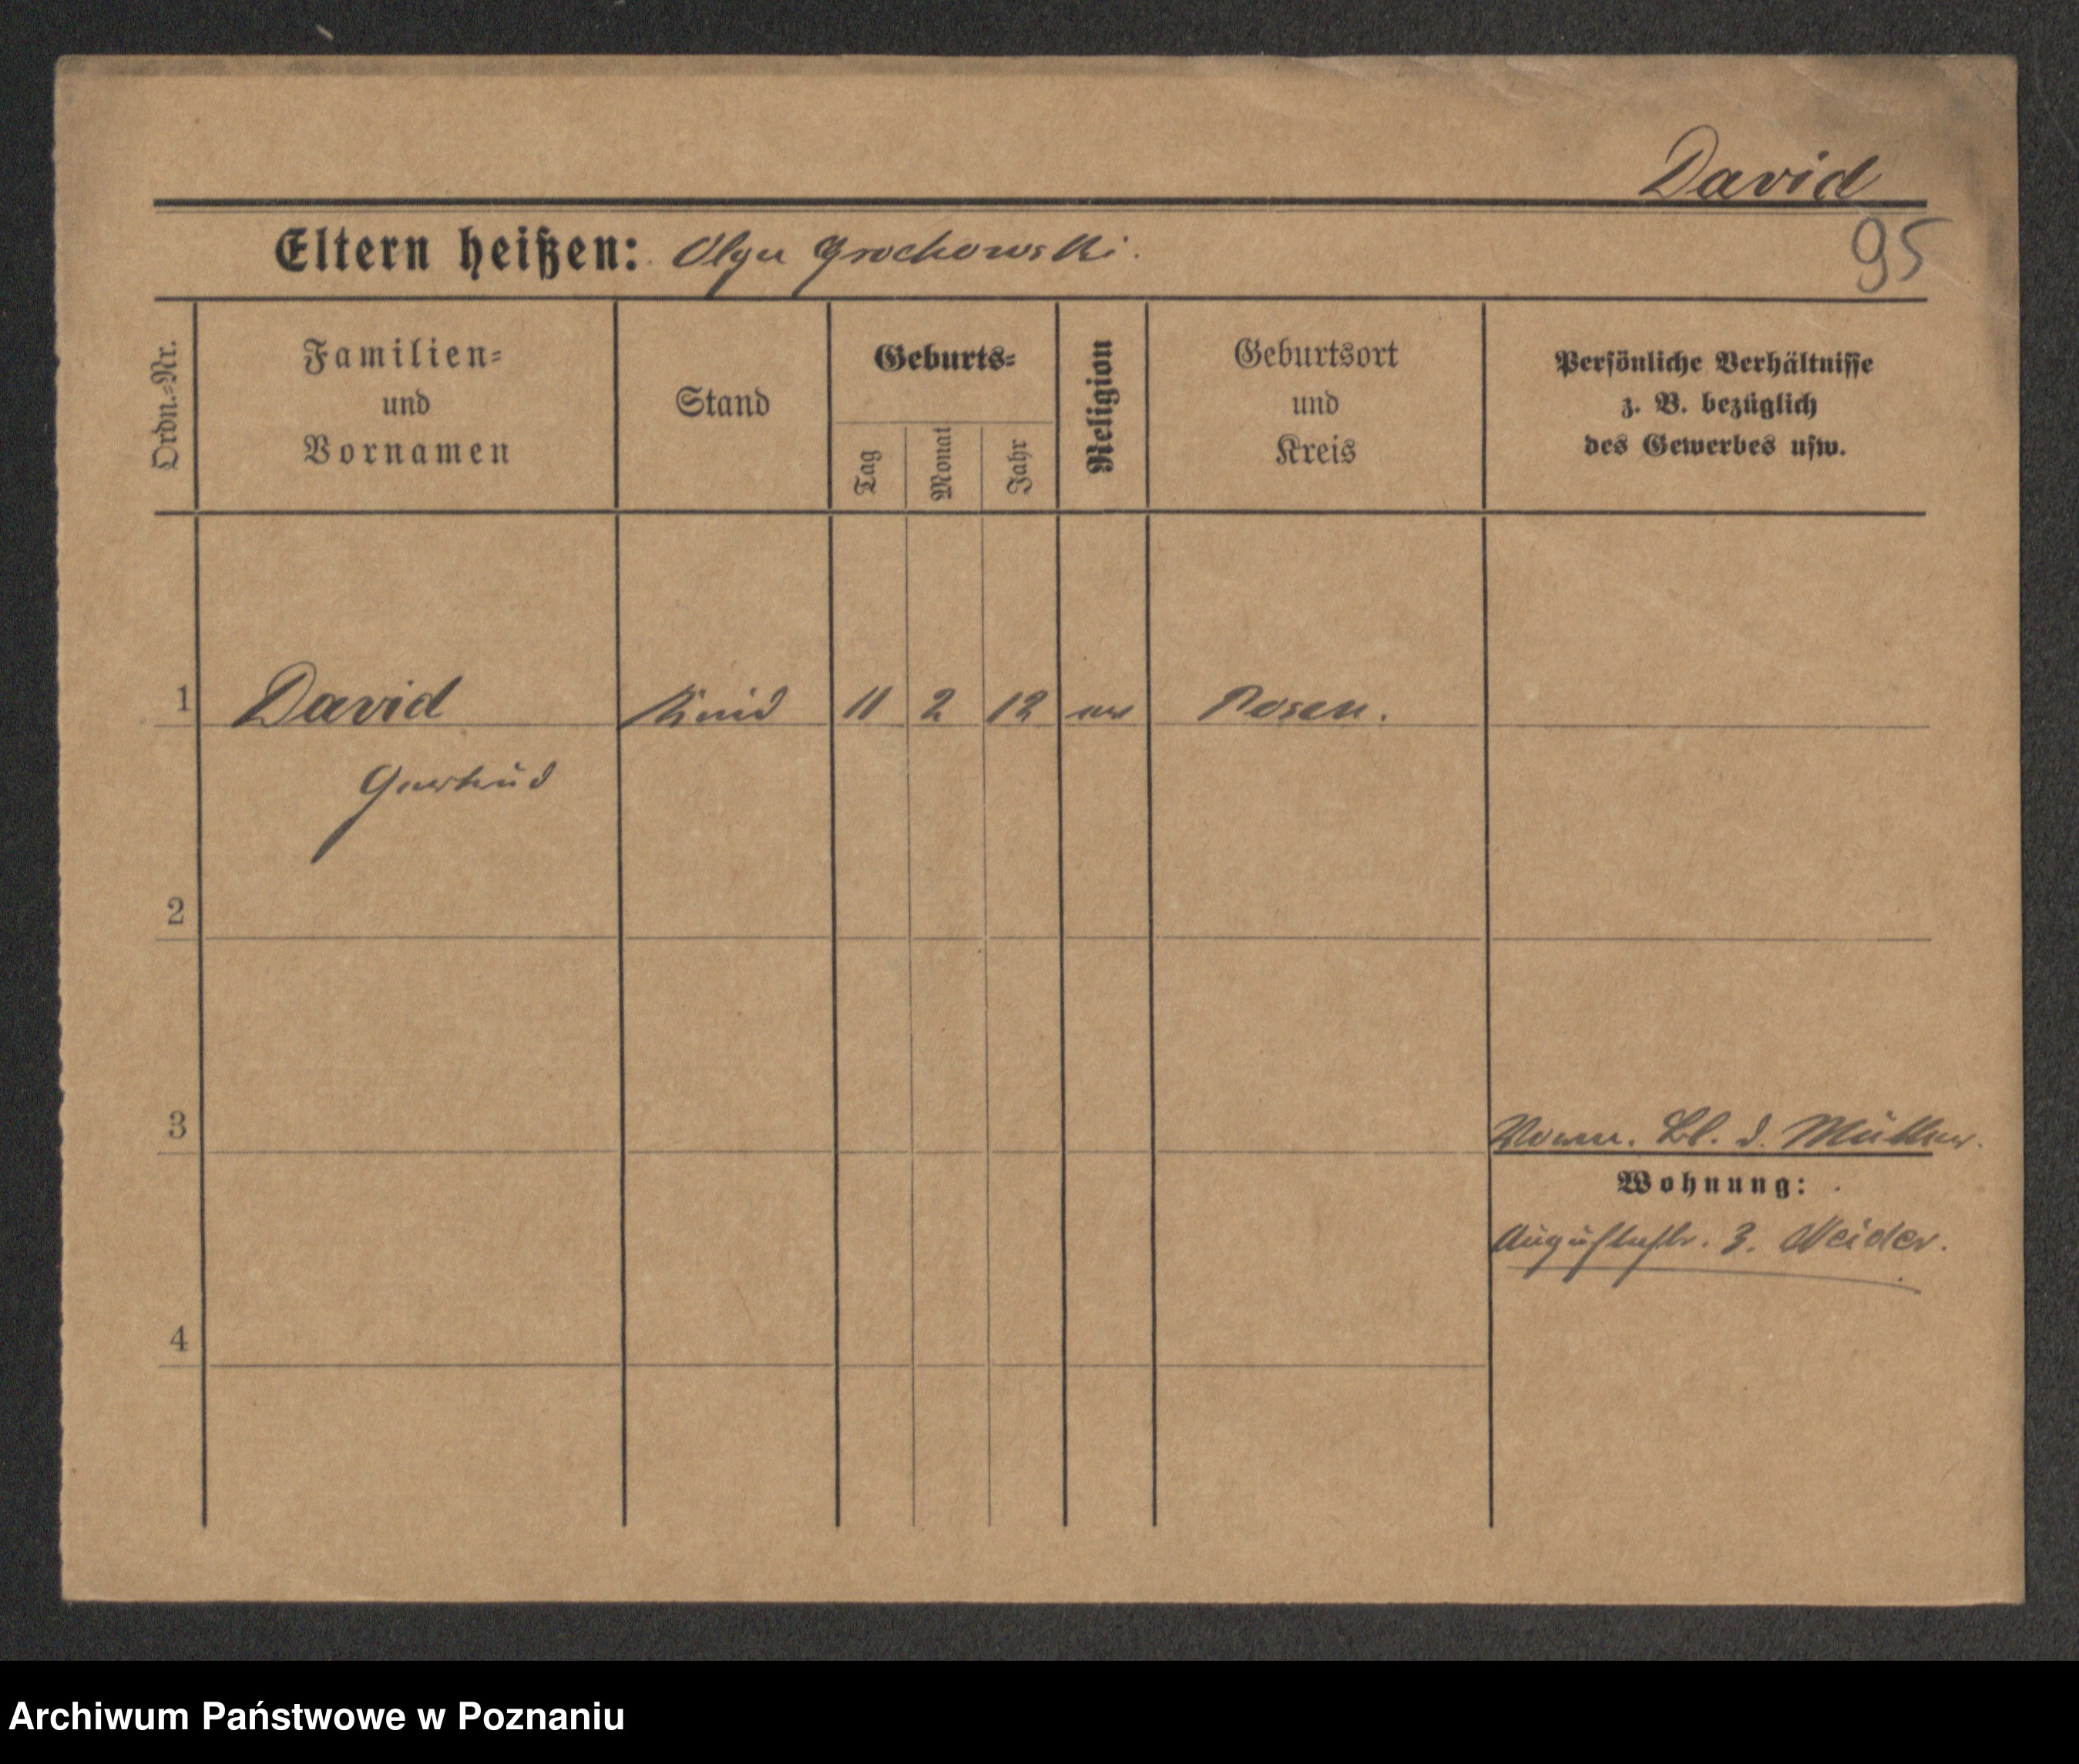 David
95
Eltern heißen: Olga Grochowski.
Ordn.-Nr.
Familien-
und
Vornamen
Stand
Geburts-
Tag
Monat
Jahr
Religion
Geburtsort
und
Kreis
Persönliche Verhältnisse
z. B. bezüglich
des Gewerbes usw.
1 David Kind 11 2 12 Posen.
Gertrud
2
3
Bl. d. Mutter.
Wohnung:
4
Augustastr. 3. Neider.
Archiwum Państwowe w Poznaniu